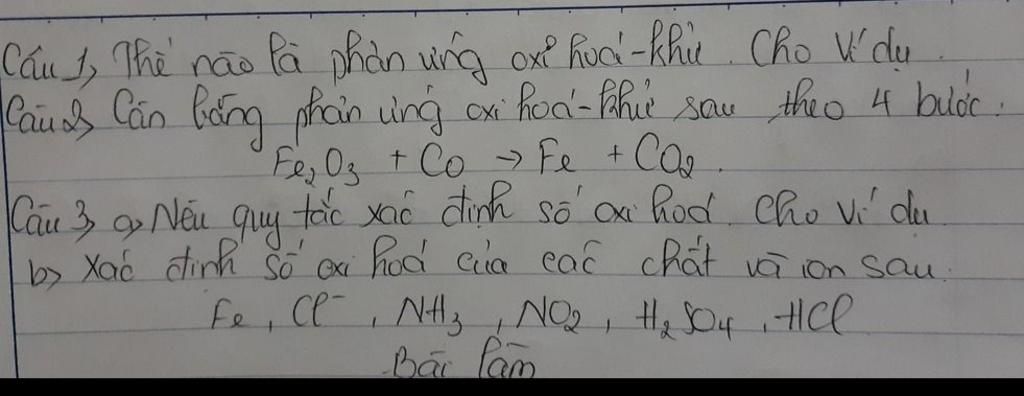 Câu 1, Thế nào là phản ứng oxi hoá-khử. Cho ví dụ.
Câu 2, Cân bằng phản ứng oxi hoá-khử sau theo 4 bước:
Fe₂O₃ + CO → Fe + CO₂.
Câu 3, a, Nêu quy tắc xác định số oxi hoá. Cho ví dụ
b, Xác định số oxi hoá của các chất và ion sau.
Fe, Cl⁻, NH₃, NO₂, H₂SO₄, HCl
Bài làm